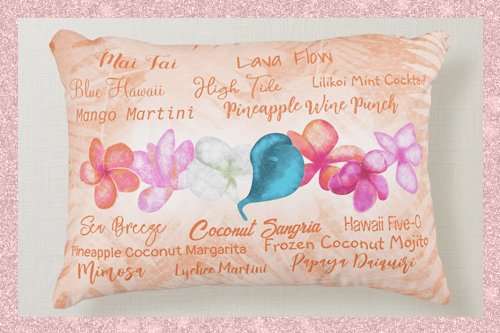 Mai Tai Lava Flow
Blue Hawaii High Tide Lilikoi Mint Cocktail
Mango Martini Pineapple Wine Punch
Sea Breeze Coconut Sangria Hawaii Five-O
Pineapple Coconut Margarita Frozen Coconut Mojito
Mimosa Lychee Martini Papaya Daiquiri